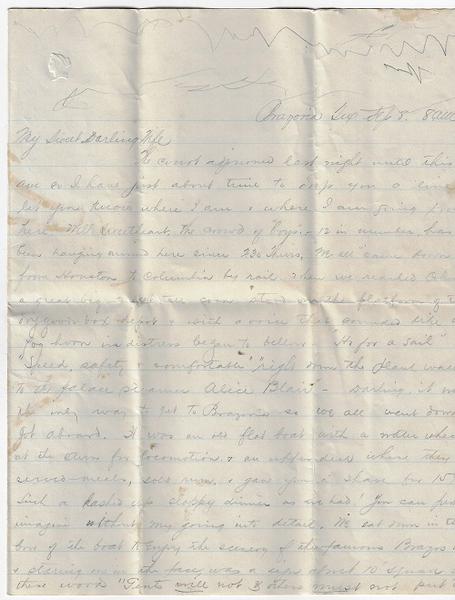 Brazoria Tex Sep 5. 8 AM
My Sweet Darling Wife
The court adjourned last night until this
ave so I have just about time to drop you a line
let you know where I am & where I am going from
here. Well sweetheart, the crowd of boys - 12 in number, has
been hanging around here since 330 Thurs, M we came down
from Houston to Columbia by rail. When we reached Col
a great big tall coon stood on the platform of the
box depot & with a voice that sounded like a
fog horn in distress began to bellow "Ho for a sail"
"Speed, safety & comfortable" "right down the plank walk
to the palace steamer Alice Blair" - Darling, it was
the only way to get to Brazoria so we all went down
got aboard. It was an old flat boat with a water wheel
at the stern for locomotion & an upper deck where they
served meals, sold & gave you a shave for 15
Such a hashed up sloppy dinner as we had! You can just
imagine without my going into detail. We sat down in the
bow of the boat to enjoy the scenery of the famous Brazos &
& staring us in the face was a sign about 10" square
these words "Gents will not & others must not put